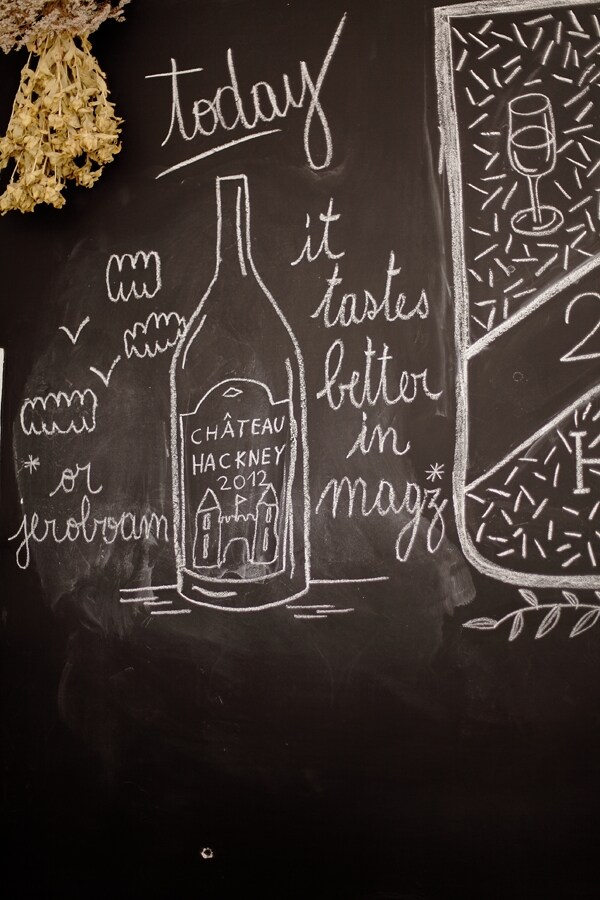 today
it
tastes
better
in
magz*
CHÂTEAU
HACKNEY
2012
*or
jeroboam
2
H